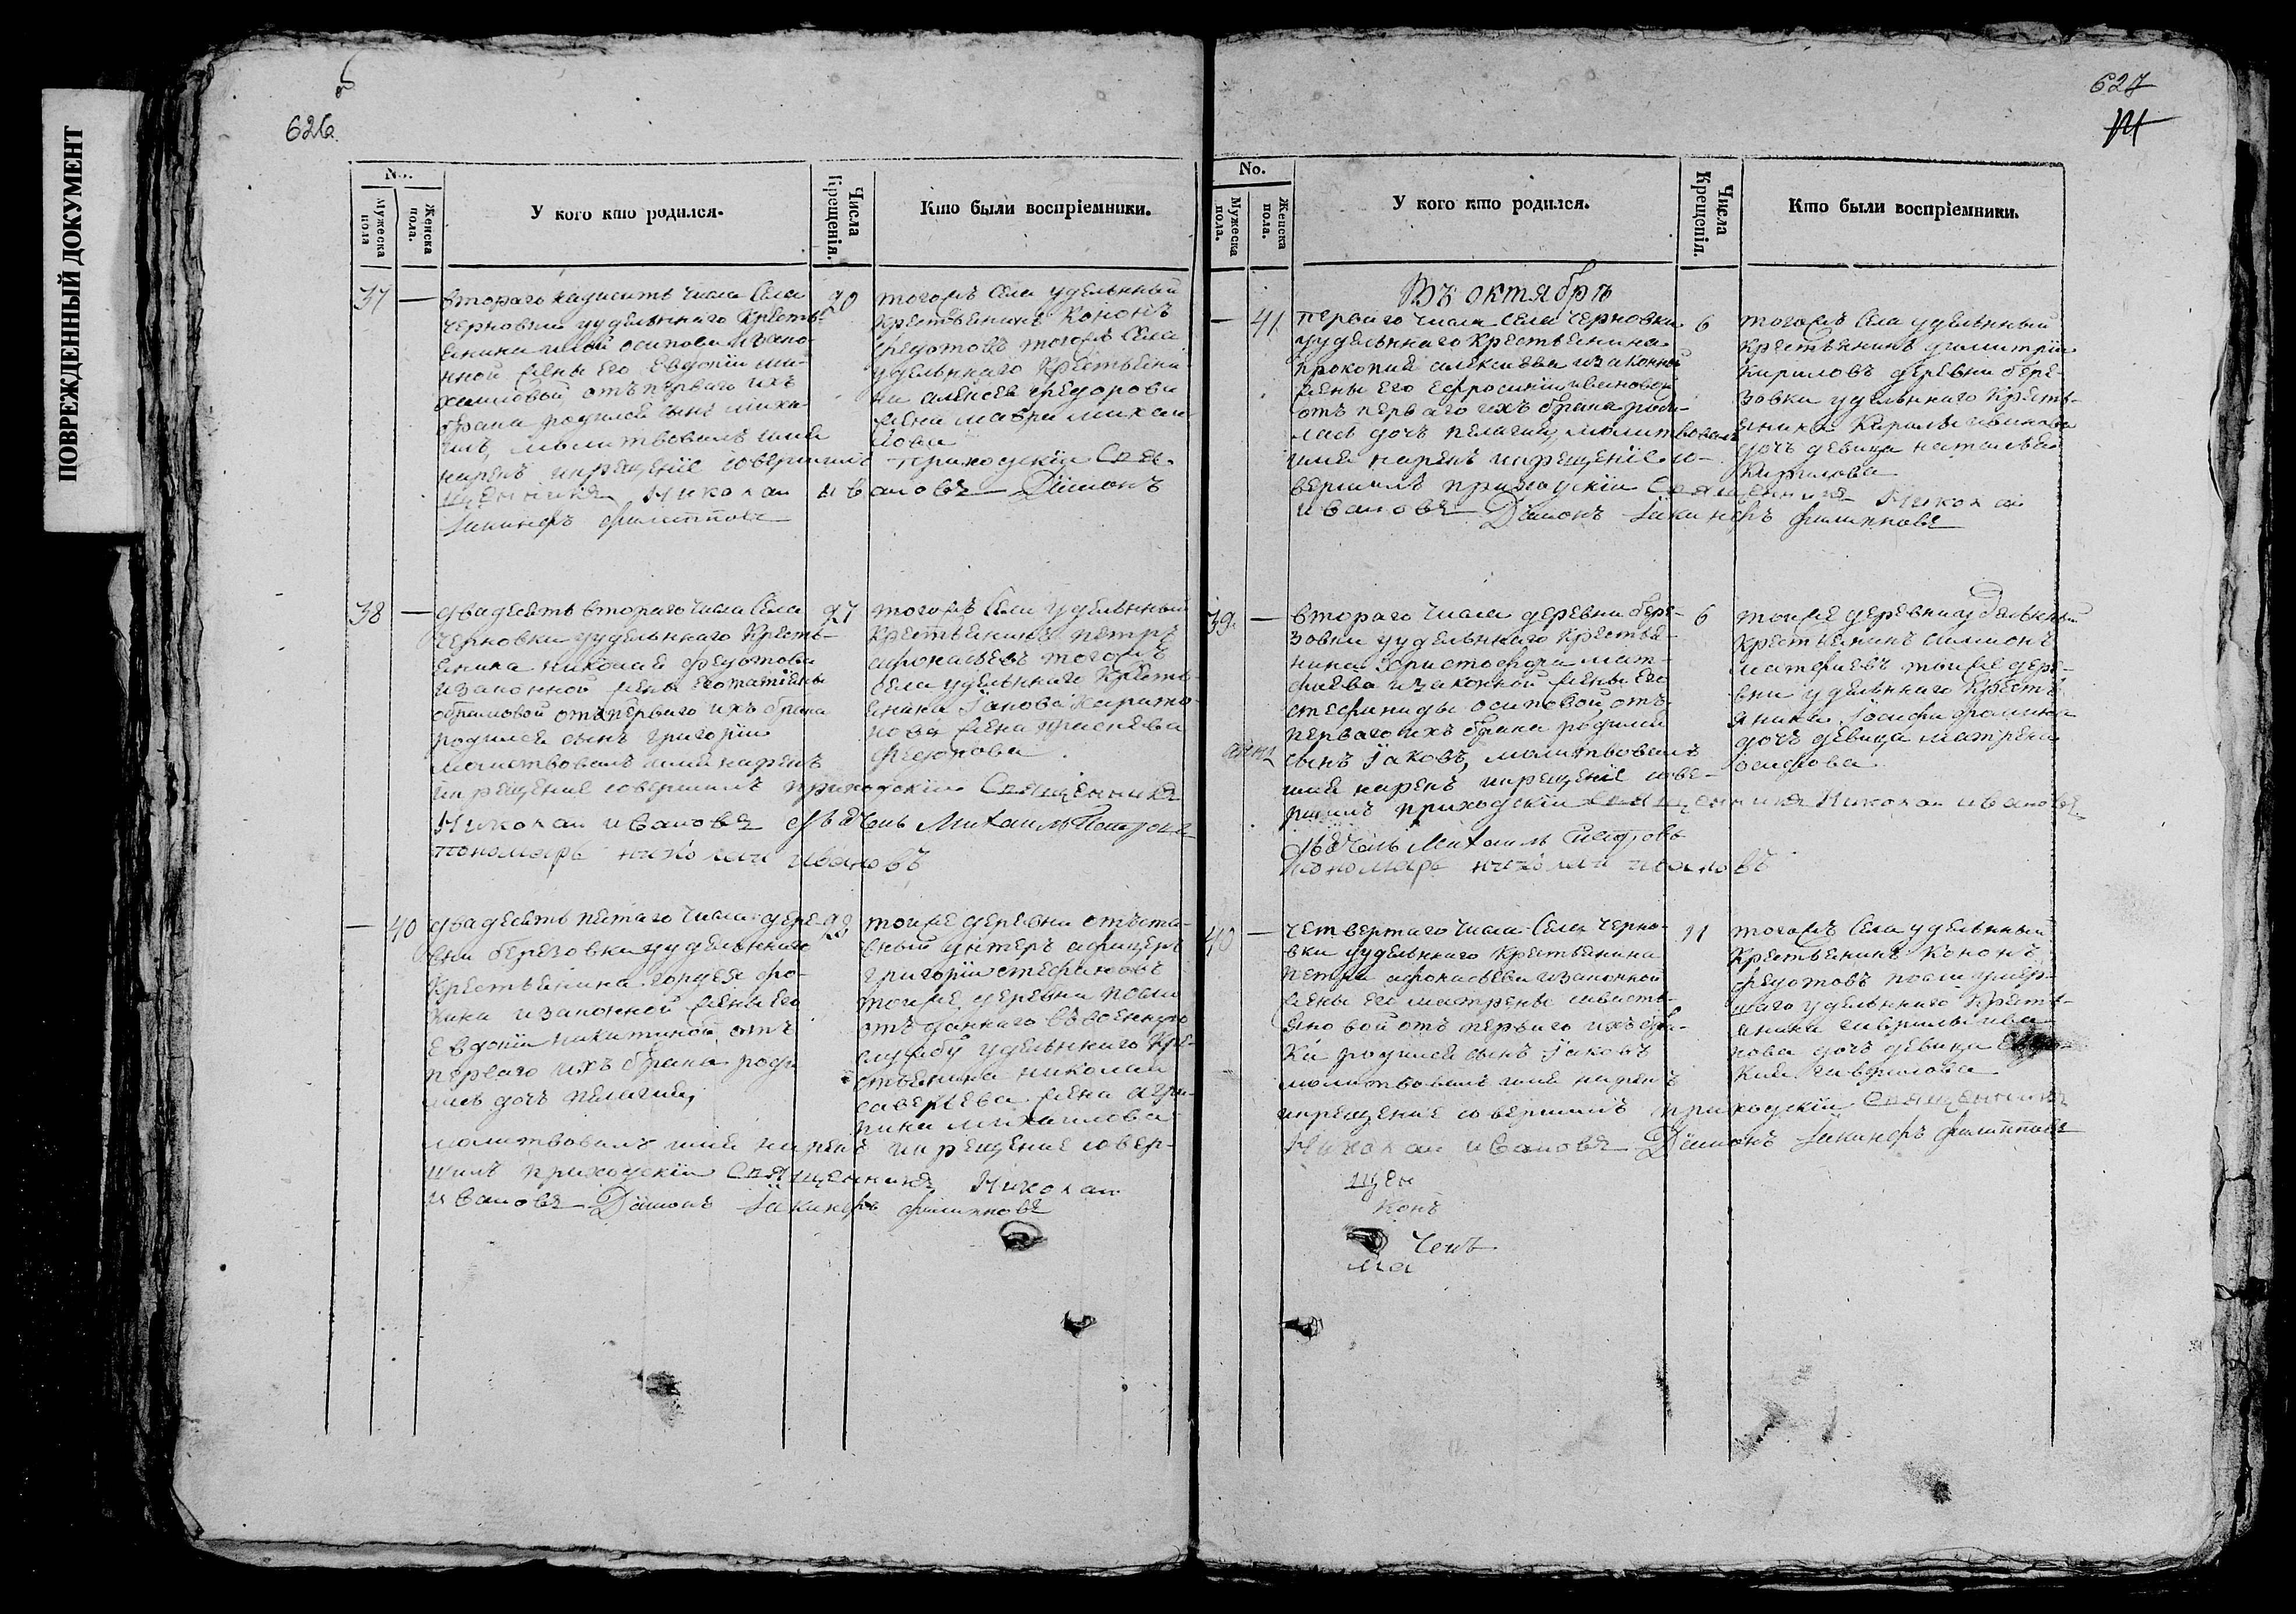 ПОВРЕЖДЕННЫЙ ДОКУМЕНТ
626
No.
Мужеска пола
Женска пола.
У кого кто родился.
Числа Крещенія.
Кто были воспріемники.
37 —
втораго надцать числа Села
Черновки у удельнаго Кресть-
янина Ильи осипова изако-
нной жены его Евдокіи ми-
хаиловой отъ перваго ихъ
брака родился сынъ миха-
илъ, молитвовалъ имя
нарекъ икрещеніе совершилъ приходскіи Свя-
щенникъ Николаи Ивановъ Дїаконъ
Iакинфъ филипповъ
20
тогожъ Села удельный
Крестьянинъ Кононъ
федотовъ тогожъ Села
удельнаго Крестьяни-
на алексея федорова
жена мавра михаи-
лова
38 —
двадесять втораго числа Села
Черновки у удельнаго Кресть-
янина николая федотова
изаконной жены его татіяны
абрамовой отъ перваго ихъ брака
родился сынъ григоріи
молитвовалъ имя нарекъ
икрещеніе совершилъ приходскіи Священникъ
Николаи ивановъ дьячекъ Михаилъ Петровъ
пономарь николаи ивановъ
27
тогожъ Села удельный
Крестьянинъ петръ
афонасьевъ тогожъ
Села удельнаго Кресть-
янина Iакова Харито-
нова жена
— 40
двадесять пятаго числа дере-
вни березовки у удельнаго
Крестьянина гордея фо-
кина изаконной жены его
Евдокіи никитиной отъ
перваго ихъ брака роди-
лась дочь пелагия,
молитвовалъ имя нарекъ икрещеніе совер-
шилъ приходскіи Священникъ Николаи
ивановъ Дїаконъ Iакинфъ филипповъ
28
тойже деревни отъста-
вный унтеръ афицеръ
григоріи стефановъ
тойже деревни после
отъданнаго въ военную
службу удельнаго Кре-
стьянина николая
савельева жена агри-
пина михаилова
627
No.
Мужеска пола.
Женска пола.
У кого кто родился.
Числа Крещенія.
Кто были воспріемники.
Въ октябрѣ
— 41
перваго числа Села Черновки
у удельнаго Крестьянина
прокопия алексеева изаконной
жены его Ефросиніи ивановой
отъ перваго ихъ брака роди-
лась дочь пелагия, молитвовалъ
имя нарекъ икрещеніе со-
вершилъ приходскіи Священникъ Николаи
ивановъ Дїаконъ Iакинфъ филипповъ
6
тогожъ Села удельный
Крестьянинъ димитріи
Кириловъ деревни бере-
зовки удельнаго Кресть-
янина Кирилы иванова
дочь девица наталья
Кирилова
39 —
втораго числа деревни бере-
зовки у удельнаго Крестья-
нина Христофора мат-
феева изаконной жены его
стефаниды осиповой, отъ
перваго ихъ брака родился
сынъ Iаковъ, молитвовалъ
имя нарекъ икрещеніе сове-
ршилъ приходскіи Священникъ Николаи ивановъ
дьячекъ Михаилъ Петровъ
пономарь николаи ивановъ
6
тойже деревни удельный
Крестьянинъ симионъ
матфиевъ тойже дере-
вни удельнаго Кресть-
янина Iосифа фомина
дочь девица матрена
Iосифова
40 —
четвертаго числа Села черно-
вки у удельнаго Крестьянина
петра афонасьева изаконной
жены его матрены
отъ перваго ихъ бра-
ка родился сынъ Iаковъ
молитвовалъ имя нарекъ
икрещеніе совершилъ приходскіи Священникъ
Николаи ивановъ Дїаконъ Iакинфъ филипповъ
11
тогожъ Села удельный
Крестьянинъ Кононъ
федотовъ после умер-
шаго удельнаго Кресть-
янина гаврилы ива-
нова дочь девица
гаврилова
щен
конъ
чекъ
ма